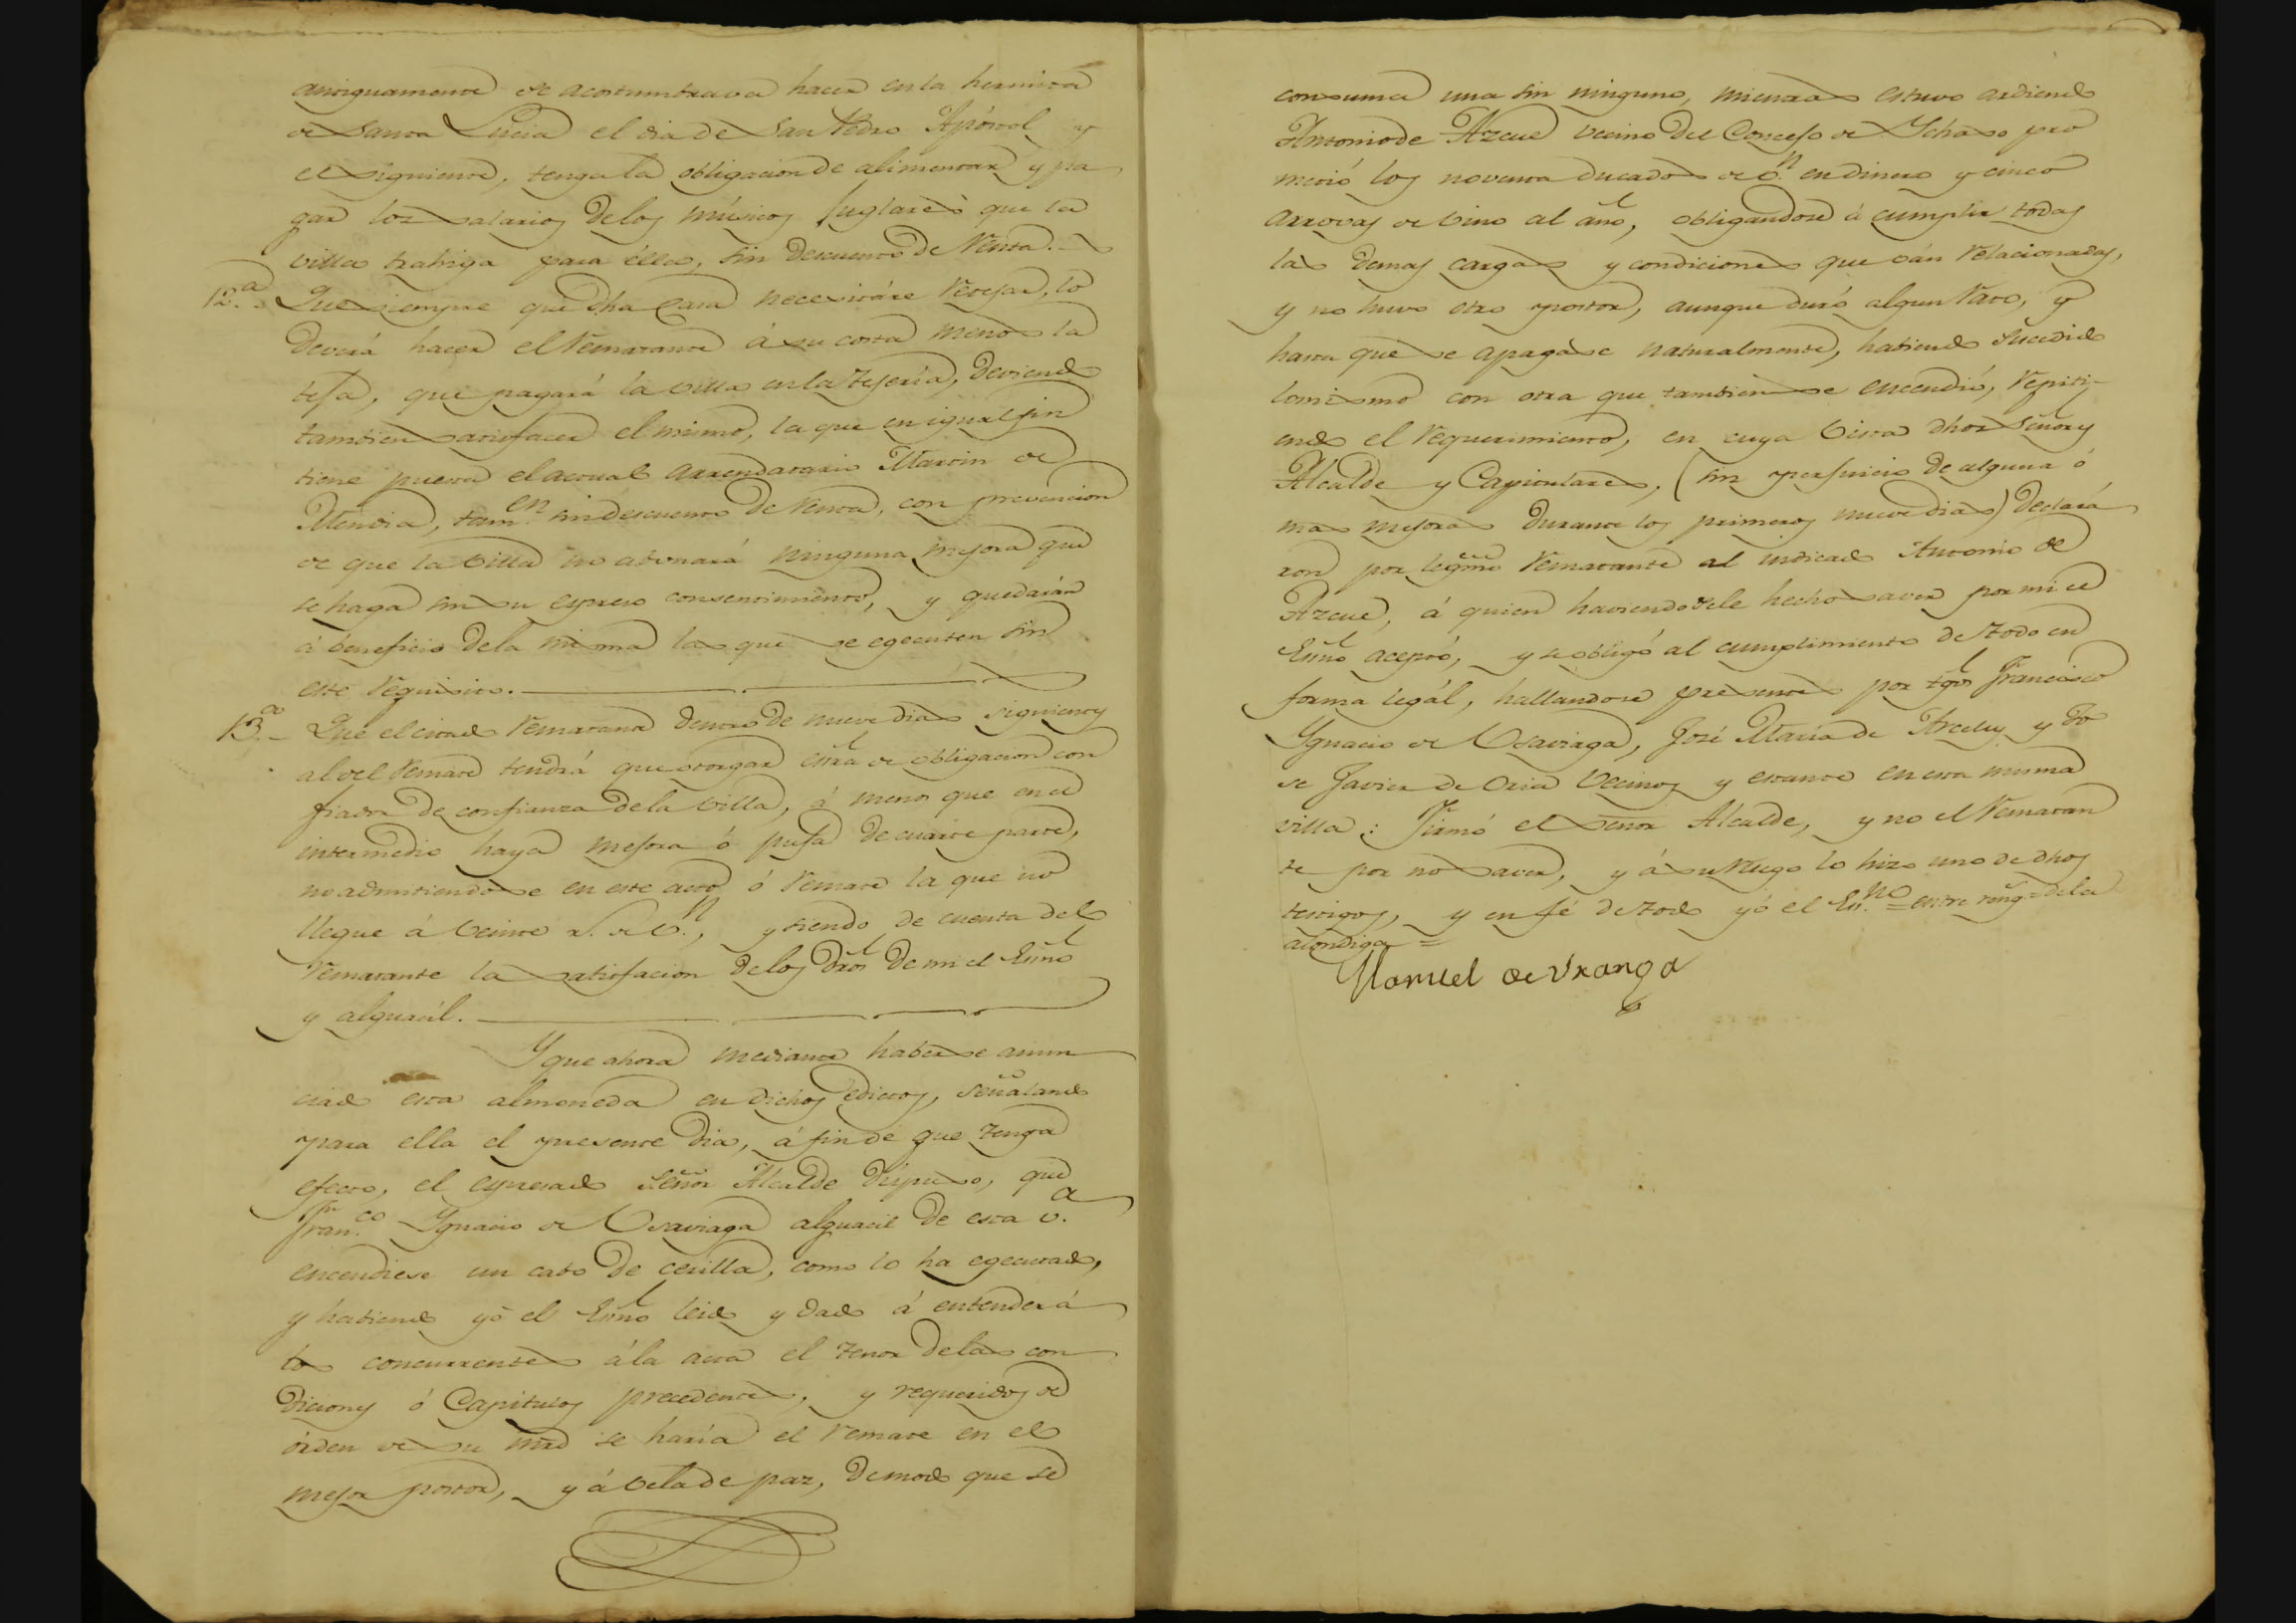 antiguamente se acostumbrava hacer en la hermita
de Santa Lucia el dia de San Pedro Apóstol y
el siguiente, tenga la obligacion de alimentar y pa
gar los salarios de los músicos juglares que la
villa trahiga para ella, sin descuento de Renta.
12.a Que siempre que dha Casa necesitáre retejar, lo
deverá hacer el Rematante á su costa menos la
teja, que pagará la villa en la Tejeria, deviendo
tambien satisfacer el mismo, la que en igual fin
tiene puesta el actual arrendatario Martin de
Mendia, tam.en sin descuento de Renta, con prevencion
de que la Villa no abonará ninguna mejora que
se haga sin su espreso consentimiento, y quedarán
á beneficio de la misma las que se egecuten sin
este requisito.
13.a Que el citado Rematante dentro de nueve dias siguientes
al del Remate tendrá que otorgar esrã de obligacion con
fiador de confianza de la Villa, á menos que en el
intermedio haya mejora ó puja de cuarte parte,
no admitiendose en este acto, ó Remate la que no
llegue á veinte r.s de v.n, y siendo de cuenta del
Rematante la satisfacion de los drõs de mi el Esnõ
y alguacil.
Y que ahora mediante haberse anun
ciado esta almoneda en dichos edictos, señalando
para ella el presente dia, á fin de que tenga
efecto, el espresado Señor Alcalde dispuso, que
Fran.co Ygnacio de Usaviaga alguacil de esta v.a
encendiese un cabo de cerilla, como lo ha egecutado,
y habiendo yó el Esnõ leido y dado á entender á
los concurrentes á la acta el tenor de las con
diciones ó Capitulos precedentes, y requeridos de
órden de su mrd se haría el Remate en el
mejor postor, y á vela de paz, de modo que se
consuma una sin ninguno, mientras estuvo ardiendo
Antonio de Azcue vecino del Concejo de Ychaso pro
metió los noventa ducados de v.n en dinero y cinco
arrovas de vino al año, obligandose á cumplir todas
las demas cargas y condiciones que ván relacionadas,
y no huvo otro postor, aunque duró algun rato, y
hasta que se apagáse naturalmente, habiendo sucedido
lo mismo con otra que tambien se encendió, repiti-
endo el requerimiento, en cuya vista dhos Señores
Alcalde y Capitulares, (sin perjuicio de alguna ó
mas mejoras durante los primeros nueve dias) declará
ron por legmõ Rematante al indicado Antonio de
Azcue, á quien haviendosele hecho saver por mi el
Esnõ aceptó, y se obligó al cumplimiento de todo en
forma legál, hallandose presentes por tgõs Francisco
Ygnacio de Usaviaga, José Maria de Arcelus y Jo
se Javier de Oria vecinos y estante en esta misma
villa: Firmó el Señor Alcalde, y no el Rematan
te por no saver, y á su ruego lo hizo uno de dhos
testigos, y en fé de todo yó el Es.no = entre reng.s = de la
alondiga =
Manuel de Uranga